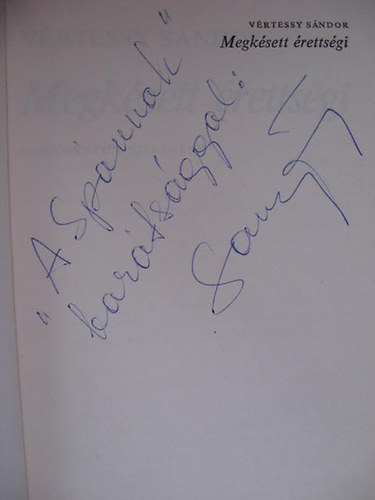 VÉRTESSY SÁNDOR
Megkésett érettségi
"A Spannak"
barátsággal: